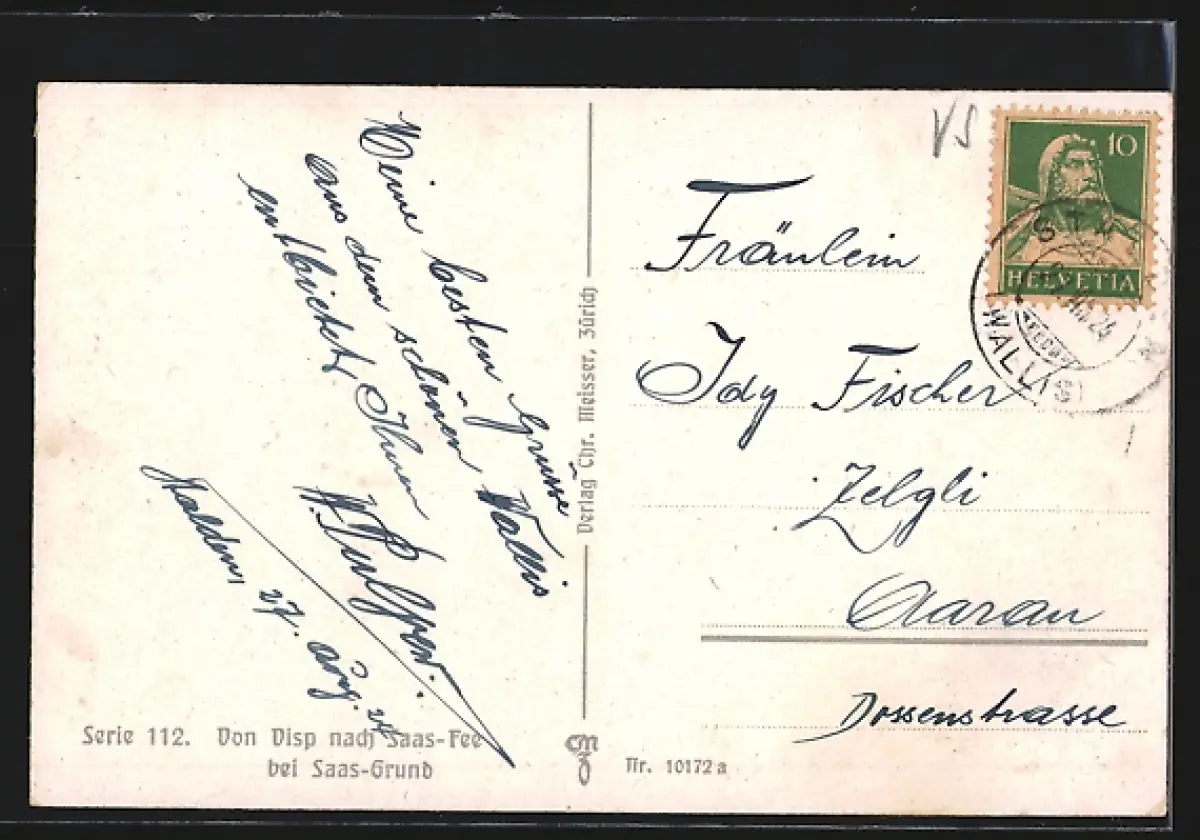 Meine besten Grüsse
aus dem schönen Wallis
entbietet Ihnen
Stalden, 27. Aug. 24
Serie 112. Von Visp nach Saas-Fee
bei Saas-Grund
Verlag Chr. Meisser, Zürich
Nr. 10172a
VS
10
HELVETIA
(WALLIS)
Fräulein
Idy Fischer
Zelgli
Aarau
Dossenstrasse